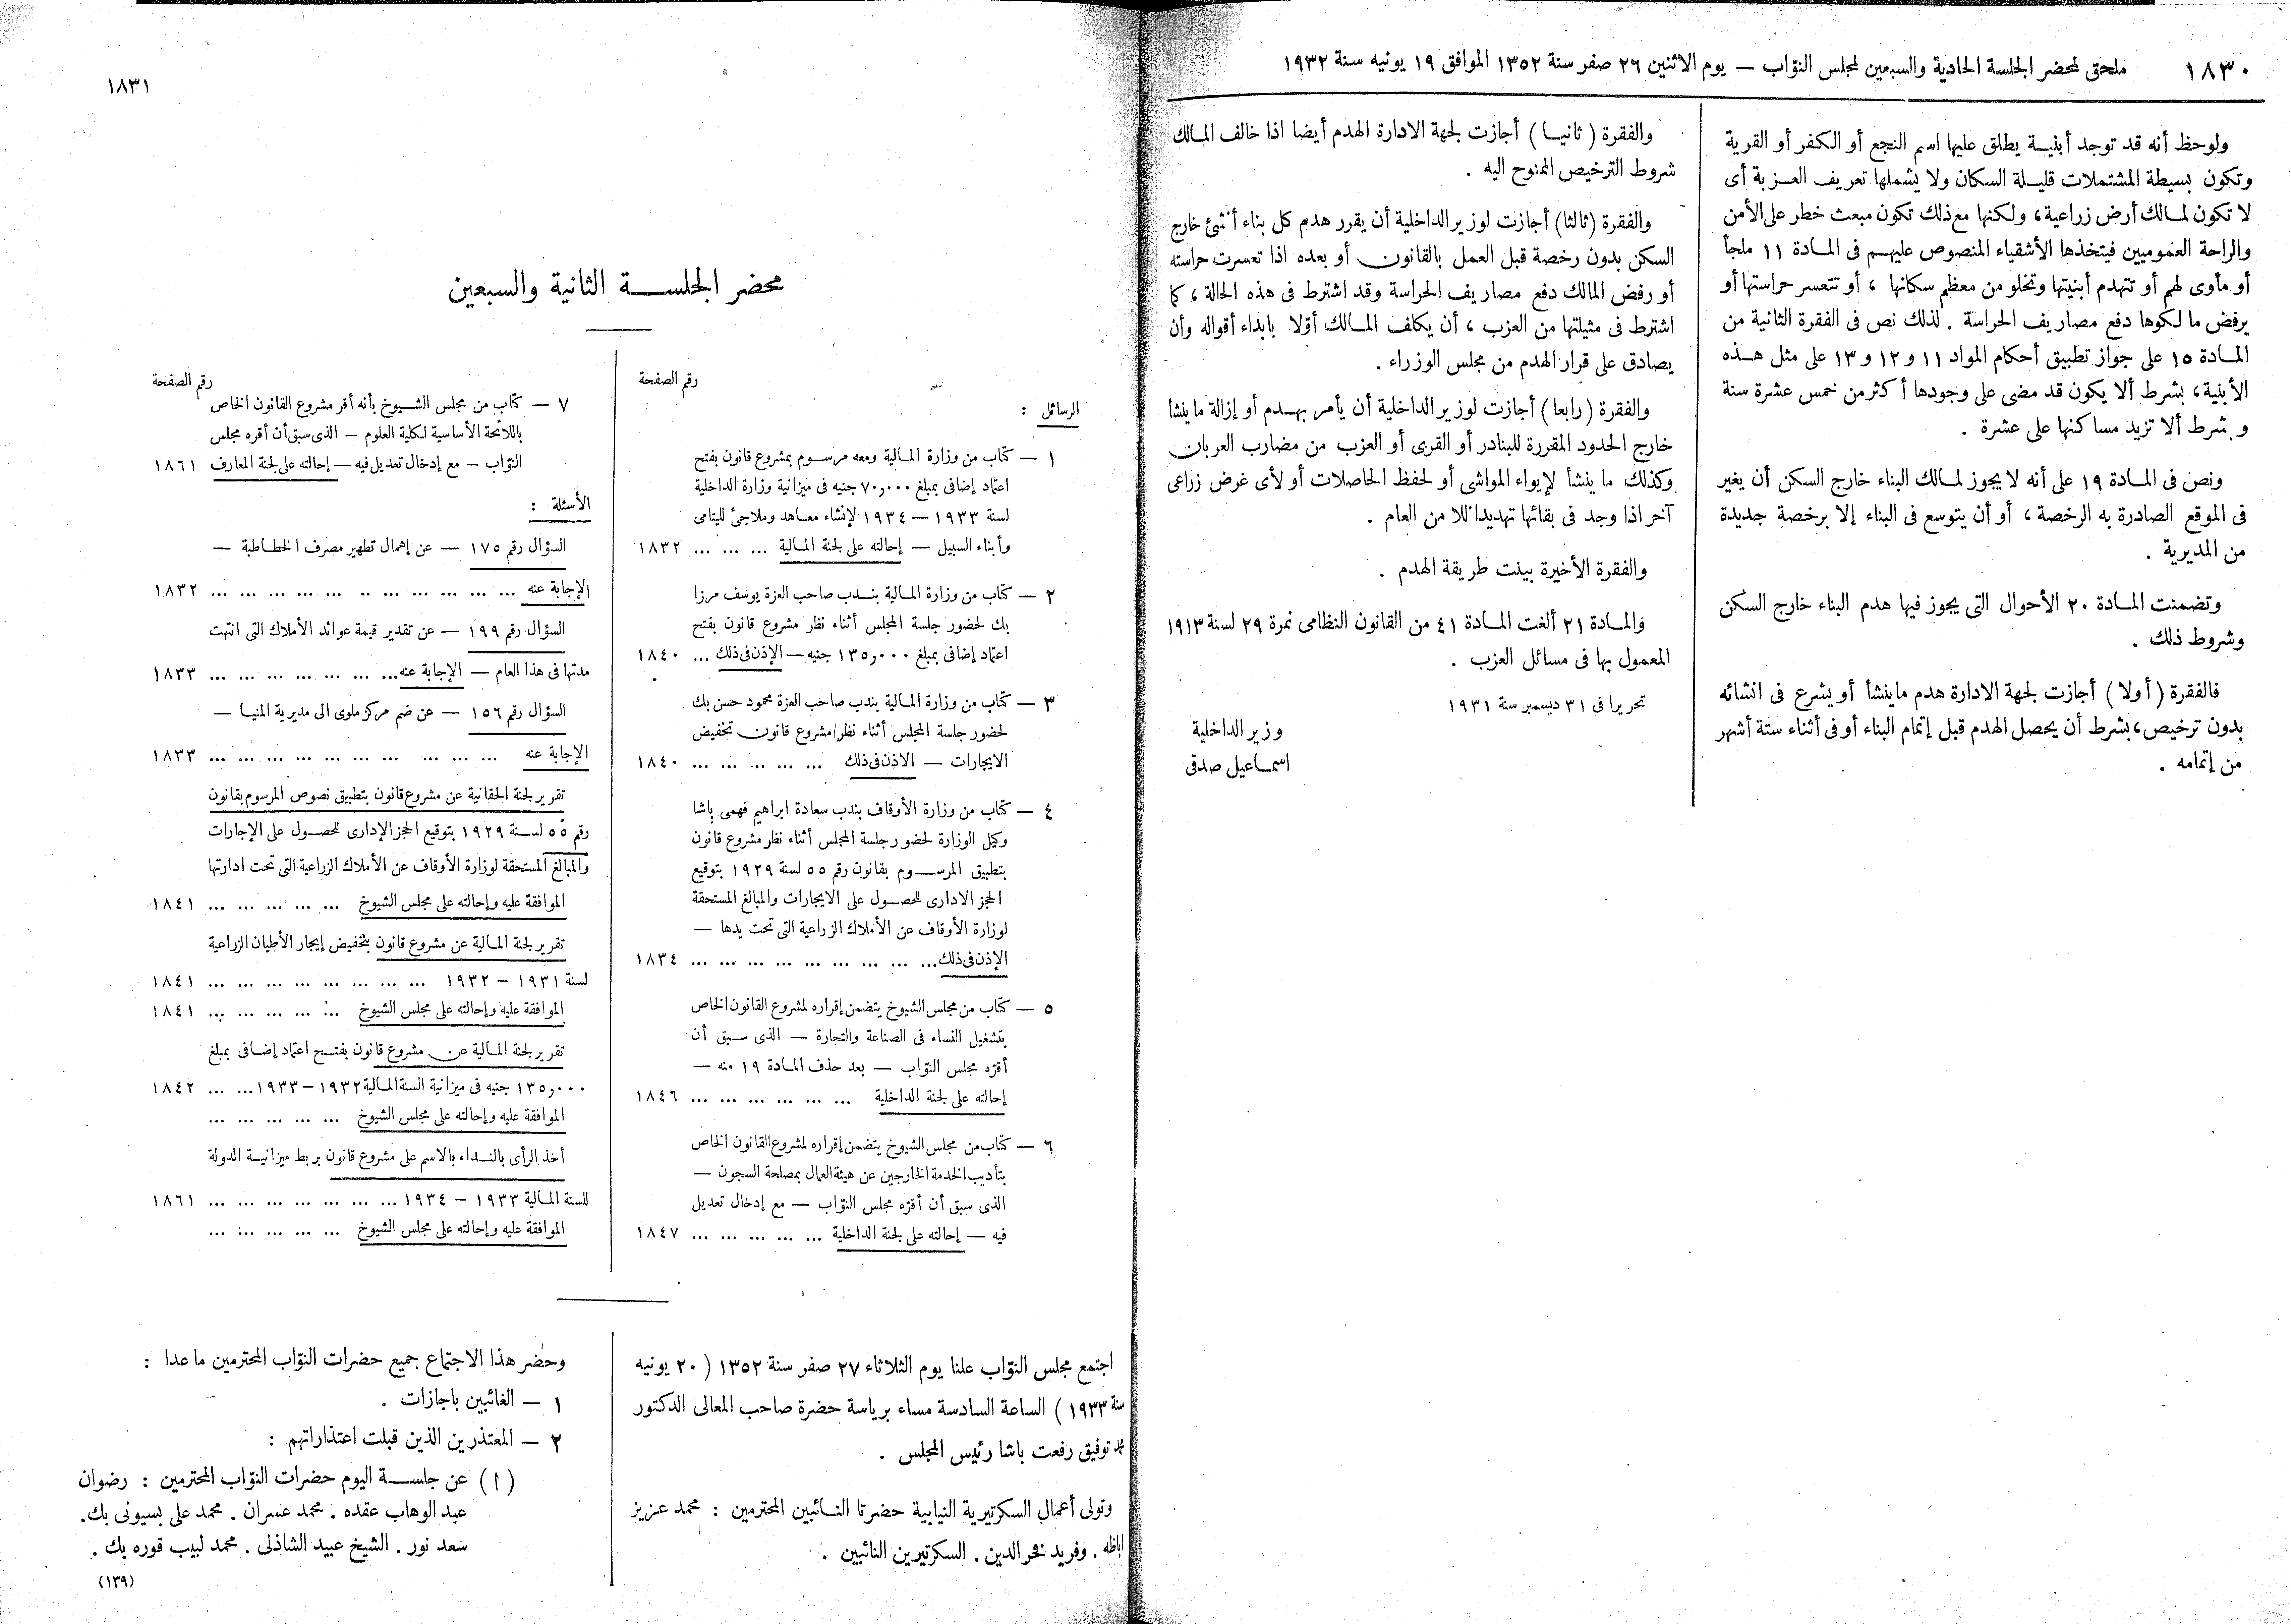 ١٨٣٠ ملحق لمحضر الجلسة الحادية والسبعين لمجلس النوّاب — يوم الاثنين ٢٦ صفر سنة ١٣٥٢ الموافق ١٩ يونيه سنة ١٩٣٢
ولوحظ أنه قد توجد أبنيـة يطلق عليها اسم النجع أو الكفر أو القرية
وتكون بسيطة المشتملات قليـلة السكان ولا يشملها تعريف العـزبة أى
لا تكون لمـالك أرض زراعية، ولكنها مع ذلك تكون مبعث خطر على الأمن
والراحة العموميين فيتخذها الأشقياء المنصوص عليهـم فى المـادة ١١ ملجأ
أو مأوى لهم أو تتهدم أبنيتها وتخلو من معظم سكانها ، أو تتعسر حراستها أو
يرفض مالكوها دفع مصاريف الحراسة . لذلك نص فى الفقرة الثانية من
المـادة ١٥ على جواز تطبيق أحكام المواد ١١ و ١٢ و ١٣ على مثل هـذه
الأبنية، بشرط ألا يكون قد مضى على وجودها أكثر من خمس عشرة سنة
وبشرط ألا تزيد مساكنها على عشرة .
ونص فى المـادة ١٩ على أنه لا يجوز لمـالك البناء خارج السكن أن يغير
فى الموقع الصادرة به الرخصة ، أو أن يتوسع فى البناء إلا برخصة جديدة
من المديرية .
وتضمنت المـادة ٢٠ الأحوال التى يجوز فيها هدم البناء خارج السكن
وشروط ذلك .
فالفقرة ( أولا ) أجازت لجهة الادارة هدم ما ينشأ أو يشرع فى انشائه
بدون ترخيص، بشرط أن يحصل الهدم قبل إتمام البناء أو فى أثناء ستة أشهر
من إتمامه .
والفقرة ( ثانيـا ) أجازت لجهة الادارة الهدم أيضا اذا خالف المـالك
شروط الترخيص الممنوح اليه .
والفقرة (ثالثا) أجازت لوزير الداخلية أن يقرر هدم كل بناء أنشئ خارج
السكن بدون رخصة قبل العمل بالقانون أو بعده اذا تعسرت حراسته
أو رفض المالك دفع مصاريف الحراسة وقد اشترط فى هذه الحالة ، كما
اشترط فى مثيلتها من العزب ، أن يكلف المـالك أوّلا بابداء أقواله وأن
يصادق على قرار الهدم من مجلس الوزراء .
والفقرة (رابعا) أجازت لوزير الداخلية أن يأمر بهـدم أو إزالة ما ينشأ
خارج الحدود المقررة للبنادر أو القرى أو العزب من مضارب العربان
وكذلك ما ينشأ لإيواء المواشى أو لحفظ الحاصلات أو لأى غرض زراعى
آخر اذا وجد فى بقائها تهديدا للأمن العام .
والفقرة الأخيرة بينت طريقة الهدم .
والمـادة ٢١ ألغت المـادة ٤١ من القانون النظامى نمرة ٢٩ لسنة ١٩١٣
المعمول بها فى مسائل العزب .
تحريرا فى ٣١ ديسمبر سنة ١٩٣١
وزير الداخلية
اسمـاعيل صدقى
١٨٣١
محضر الجلســة الثانية والسبعين
رقم الصفحة
الرسائل :
١ — كتاب من وزارة المـالية ومعه مرسـوم بمشروع قانون بفتح
اعتماد إضافى بمبلغ ٧٠,٠٠٠ جنيه فى ميزانية وزارة الداخلية
لسنة ١٩٣٣ — ١٩٣٤ لإنشاء معـاهد وملاجئ لليتامى
وأبناء السبيل — إحالته على لجنة المـالية ... ... ... ١٨٣٢
٢ — كتاب من وزارة المـالية بنـدب صاحب العزة يوسف مرزا
بك لحضور جلسة المجلس أثناء نظر مشروع قانون بفتح
اعتماد إضافى بمبلغ ١٣٥,٠٠٠ جنيه — الإذن فى ذلك ... ١٨٤٠
٣ — كتاب من وزارة المـالية بندب صاحب العزة محمود حسن بك
لحضور جلسة المجلس أثناء نظر مشروع قانون تخفيض
الايجارات — الاذن فى ذلك ... ... ... ... ... ١٨٤٠
٤ — كتاب من وزارة الأوقاف بندب سعادة ابراهيم فهمى باشا
وكيل الوزارة لحضور جلسة المجلس أثناء نظر مشروع قانون
بتطبيق المرسـوم بقانون رقم ٥٥ لسنة ١٩٢٩ بتوقيع
الحجز الادارى للحصـول على الايجارات والمبالغ المستحقة
لوزارة الأوقاف عن الأملاك الزراعية التى تحت يدها —
الإذن فى ذلك ... ... ... ... ... ... ... ... ... ١٨٣٤
٥ — كتاب من مجلس الشيوخ يتضمن إقراره لمشروع القانون الخاص
بتشغيل النساء فى الصناعة والتجارة — الذى سـبق أن
أقرّه مجلس النوّاب — بعد حذف المـادة ١٩ منه —
إحالته على لجنة الداخلية ... ... ... ... ... ... ١٨٤٦
٦ — كتاب من مجلس الشيوخ يتضمن إقراره لمشروع القانون الخاص
بتأديب الخدمة الخارجين عن هيئة العمال بمصلحة السجون —
الذى سبق أن أقرّه مجلس النوّاب — مع إدخال تعديل
فيه — إحالته على لجنة الداخلية ... ... ... ... ... ١٨٤٧
رقم الصفحة
٧ — كتاب من مجلس الشـيوخ بأنه أقر مشروع القانون الخاص
باللائحة الأساسية لكلية العلوم — الذى سبق أن أقره مجلس
النوّاب — مع إدخال تعديل فيه — إحالته على لجنة المعارف ١٨٦١
الأسئلة :
السؤال رقم ١٧٥ — عن إهمال تطهير مصرف الخطـاطبة —
الإجابة عنه ... ... ... ... ... ... ... ... ... ... ١٨٣٢
السؤال رقم ١٩٩ — عن تقدير قيمة عوائد الأملاك التى انتهت
مدتها فى هذا العام — الإجابة عنه ... ... ... ... ... ... ١٨٣٣
السؤال رقم ١٥٦ — عن ضم مركز ملوى الى مديرية المنيـا —
الإجابة عنه ... ... ... ... ... ... ... ... ... ... ١٨٣٣
تقرير لجنة الحقانية عن مشروع قانون بتطبيق نصوص المرسوم بقانون
رقم ٥٥ لسـنة ١٩٢٩ بتوقيع الحجز الإدارى للحصـول على الإجارات
والمبالغ المستحقة لوزارة الأوقاف عن الأملاك الزراعية التى تحت ادارتها
الموافقة عليه وإحالته على مجلس الشيوخ ... ... ... ... ... ١٨٤١
تقرير لجنة المـالية عن مشروع قانون بتخفيض إيجار الأطيان الزراعية
لسنة ١٩٣١ — ١٩٣٢ ... ... ... ... ... ... ... ... ١٨٤١
الموافقة عليه وإحالته على مجلس الشيوخ ... ... ... ... ... ١٨٤١
تقرير لجنة المـالية عن مشروع قانون بفتـح اعتماد إضـافى بمبلغ
١٣٥,٠٠٠ جنيه فى ميزانية السنة المـالية ١٩٣٢ — ١٩٣٣ ... ... ١٨٤٢
الموافقة عليه وإحالته على مجلس الشيوخ ... ... ... ... ...
أخذ الرأى بالنـداء بالاسم على مشروع قانون بربط ميزانيـة الدولة
للسنة المـالية ١٩٣٣ — ١٩٣٤ ... ... ... ... ... ... ... ١٨٦١
الموافقة عليه وإحالته على مجلس الشيوخ ... ... ... ... ...
اجتمع مجلس النوّاب علنا يوم الثلاثاء ٢٧ صفر سنة ١٣٥٢ ( ٢٠ يونيه
سنة ١٩٣٣ ) الساعة السادسة مساء برياسة حضرة صاحب المعالى الدكتور
محمد توفيق رفعت باشا رئيس المجلس .
وتولى أعمال السكرتيرية النيابية حضرتا النـائبين المحترمين : محمد عزيز
اباظه . وفريد فخر الدين . السكرتيرين النائبين .
وحضر هذا الاجتماع جميع حضرات النوّاب المحترمين ما عدا :
١ — الغائبين باجازات .
٢ — المعتذرين الذين قبلت اعتذاراتهم :
(١) عن جلسـة اليوم حضرات النوّاب المحترمين : رضوان
عبد الوهاب عقده . محمد عسران . محمد على بسيونى بك.
سعد نور . الشيخ عبيد الشاذلى . محمد لبيب قوره بك .
(١٣٩)